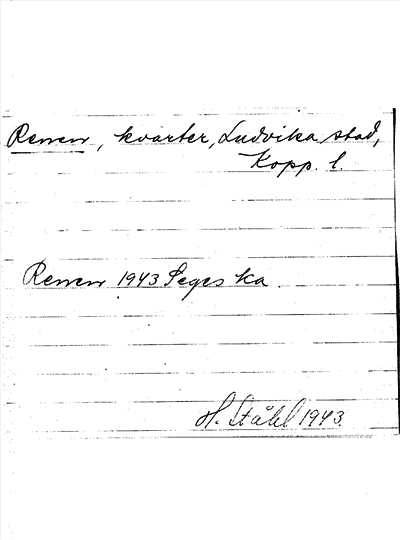 Renen, kvarter, Ludvika stad,
Kopp. l.
Renen 1943 Seges ka
H. Ståhl 1943.